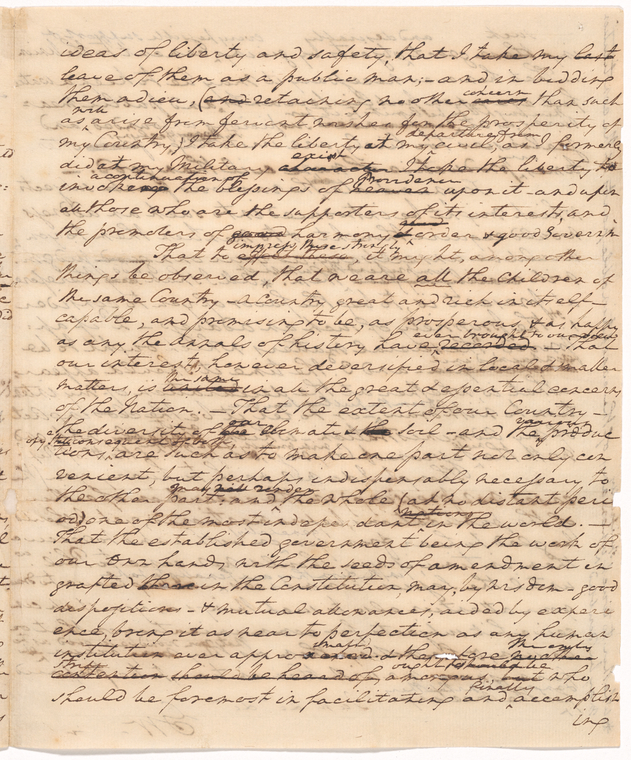 ideas of liberty and safety, that I take my last
leave of them as a public man; – and in bidding
them adieu, (and retaining no other concern than such
as arise from fervent wishes for the prosperity of
my Country,) I take the liberty at my departure from civil, as I formerly
did at my Military exit I take the liberty to
invoke a continuation of the blessings of heaven Providence upon it – and upon
all those who are the supporters of its interests, and
the promoters of good harmony order & good Governm
That to impress these strictly effect these, it might, among other
things be observed, that we are all the Children of
the same Country – a Country great and rich in itself –
capable, and promising to be, as prosperous, & as happy
as any the annals of history have recorded ever brought to our view – That
our interest, however deversified in local & smaller
matters, is the same in all the great & essential concerns
of the Nation. – That the extent of our Country –
the diversity of our climate & soil – and the various produc
tions, consequent of both are such as to make one part not only con
venient, but perhaps indispensably necessary to
the other part; and may render the whole (at no distant peri
od) one of the most independant nations in the world. –
That the established government being the work of
our own hands, with the seeds of amendment in
grafted in the Constitution, may, by wisdom – good
dispositions – & mutual allowances, aided by experi
ence, bring it as near to perfection as any human
institution ever approximated; & therefore The only
strife contention should be heard of, amongst us ought to be who
should be foremost in facilitating and finally accomplish
ing